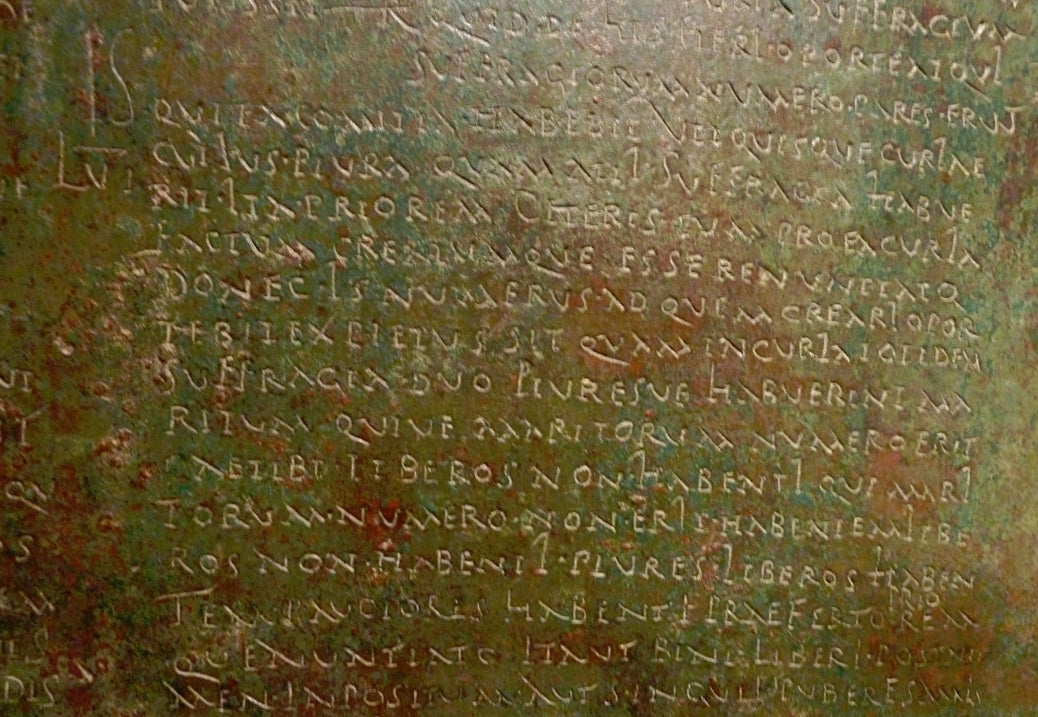 SUFFRAGIUM
R QUID DE HIS FIERI OPORTEAT QUI
SUFFRAGIORUM NUMERO·PARES·ERUNT
IS QUI EA COMITIA HABEBIT UTI QUISQUE CURIAE
LVI CUIUS·PLURA QUAM ALII·SUFFRAGIA HABUE
RIT·ITA PRIOREM CETERIS EUM PRO EA CURIA
FACTUM CREATUMQUE ESSE RENUNTIATO
DONEC·IS NUMERUS·AD QUEM CREARI OPOR
TEBIT EXPLETUS SIT QUAM IN CURIA TOTIDEM
SUFFRAGIA DUO PLURESUE HABUERINT MA
RITUM QUIUE MARITORUM NUMERO ERIT
CAELIBI LIBEROS NON HABENTI QUI MARI
TORUM·NUMERO·NON ERIT·HABENTEM LIBE
ROS NON·HABENTI·PLURES LIBEROS HABEN
TEM·PAUCIORES HABENTI PRAEFERTO PRIO REM
QUE NUNTIATO ITA UT BINI LIBERI POST NO
MEN·INPOSITUM·AUT SINGULI PUBERES AMIS